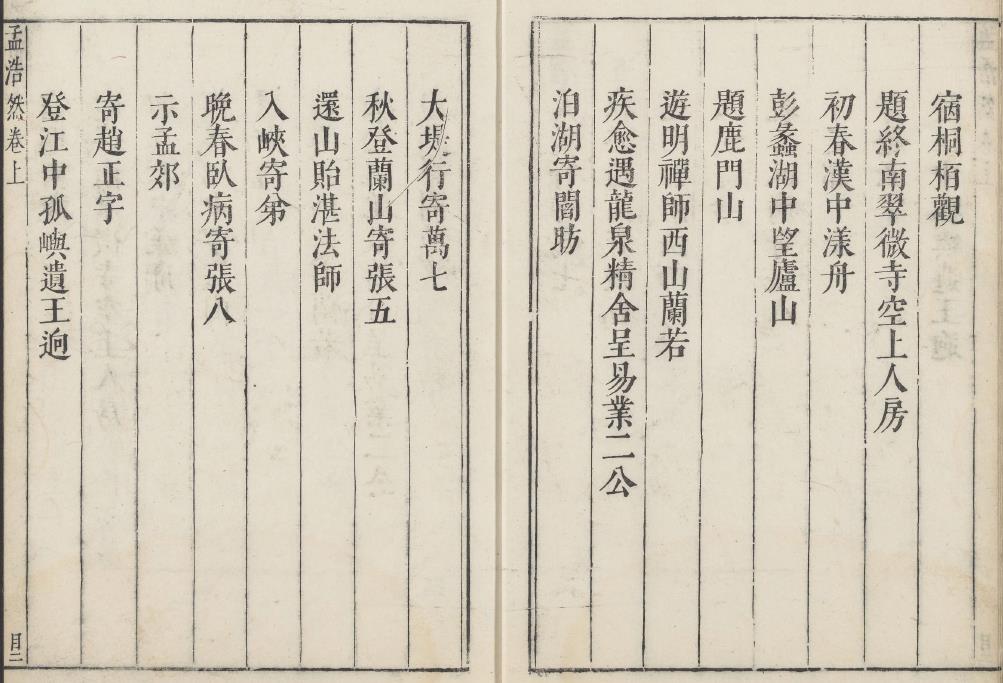 宿桐栢觀
題終南翠微寺空上人房
初春漢中漾舟
彭蠡湖中望廬山
題鹿門山
遊明禪師西山蘭若
疾愈遇龍泉精舍呈易業二公
泊湖寄閻昉
大堤行寄萬七
秋登蘭山寄張五
還山貽湛法師
入峽寄弟
晚春臥病寄張八
示孟郊
寄趙正字
登江中孤嶼遺王逈
孟浩然卷上
目二